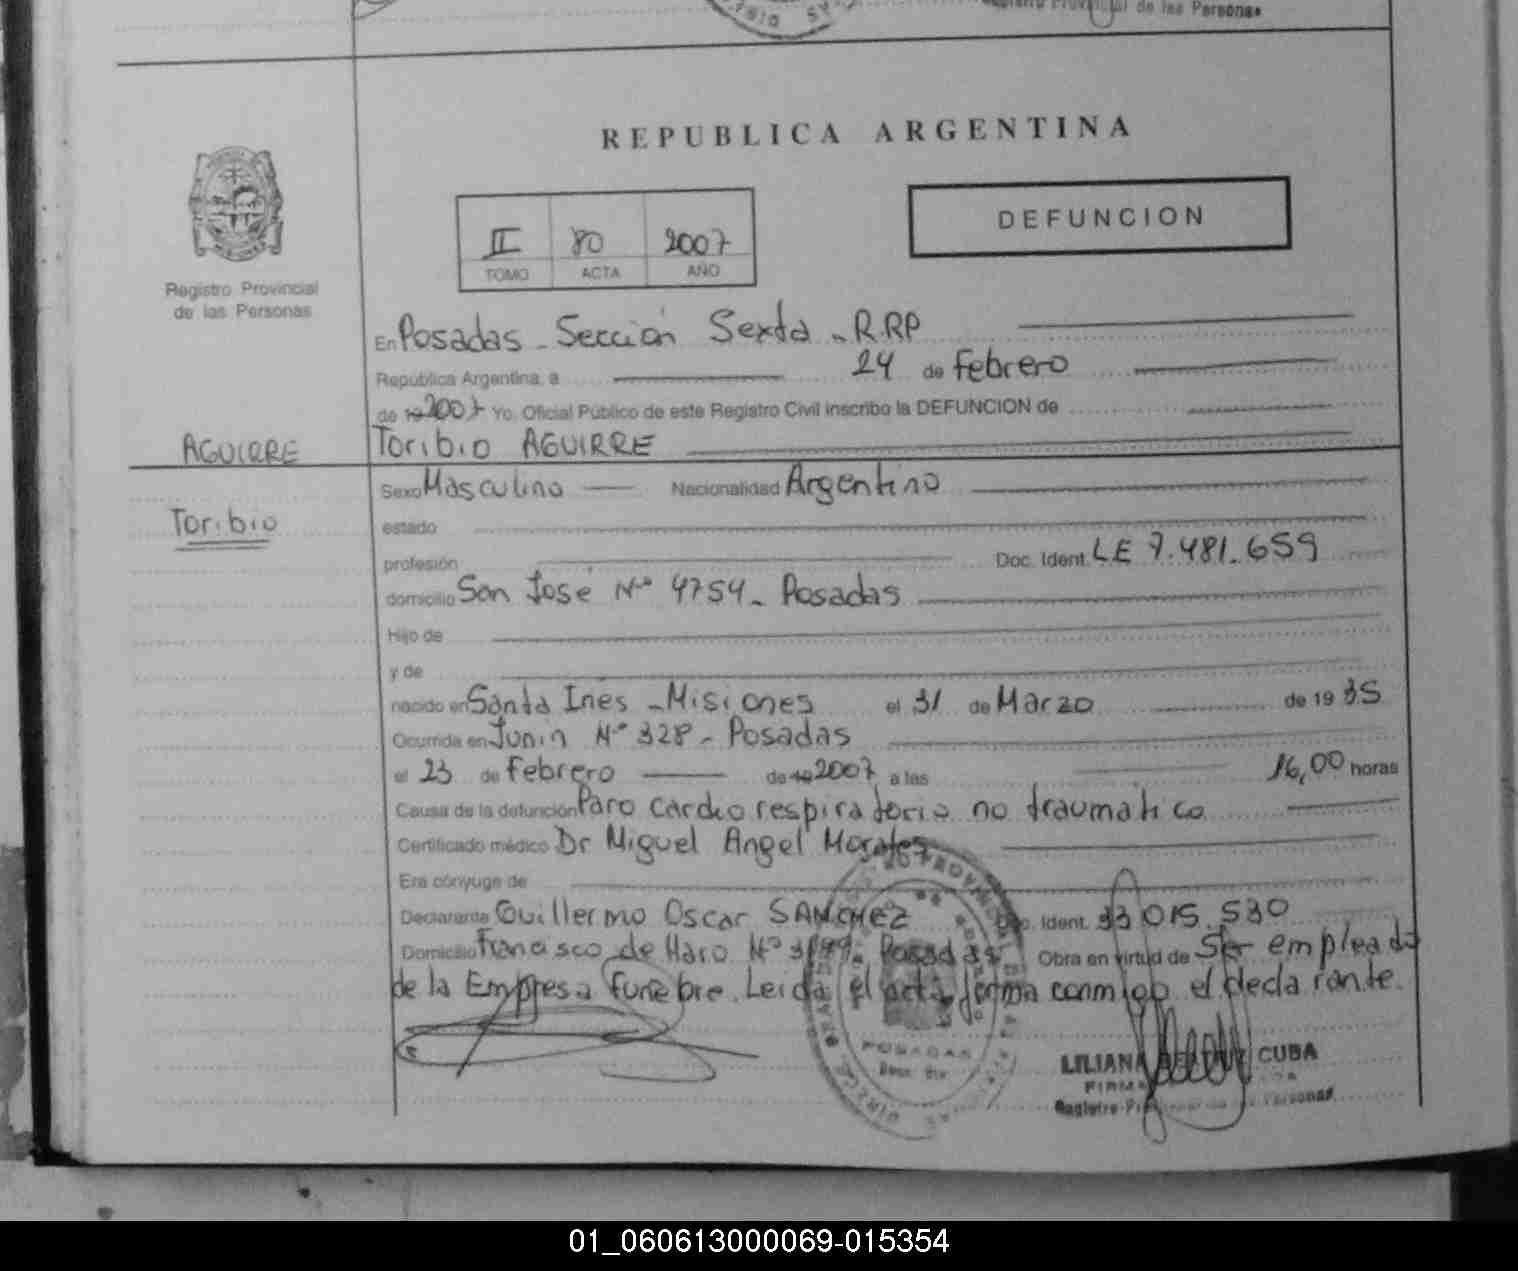 Registro Provincial de las Personas
REPUBLICA ARGENTINA
DEFUNCION
II 80 2007
TOMO ACTA AÑO
Registro Provincial
de las Personas
En Posadas - Sección Sexta - R.R.P
República Argentina, a 24 de Febrero
de 19 2007 Yo, Oficial Público de este Registro Civil inscribo la DEFUNCION de
AGUIRRE Toribio AGUIRRE
Sexo Masculino Nacionalidad Argentino
Toribio
estado
profesión Doc. Ident. LE 7.481.659
domicilio San José Nº 4754 - Posadas
Hijo de
y de
nacido en Santa Ines - Misiones el 31 de Marzo de 19 35
Ocurrida en Junin Nº 328 - Posadas
el 23 de Febrero de 19 2007 a las 16,00 horas
Causa de la defunción Paro cardio respiratorio no traumatico
Certificado médico Dr Miguel Angel Morales
Era cónyuge de
Declarante Guillermo Oscar SANCHEZ Doc. Ident. 33 015.530
Domicilio Francisco de Haro Nº Posadas Obra en virtud de Ser empleado
de la Empresa Funebre. Leida el acta, firma conmigo el declarante.
POSADAS
LILIANA CUBA
01_060613000069-015354